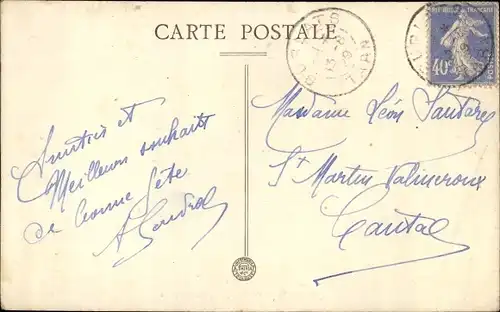 CARTE POSTALE
BURLATS
TARN
40c
Amitiés et
Meilleurs souhaits
de bonne fête
Madame Léon
St Martin Valmeroux
Cantal